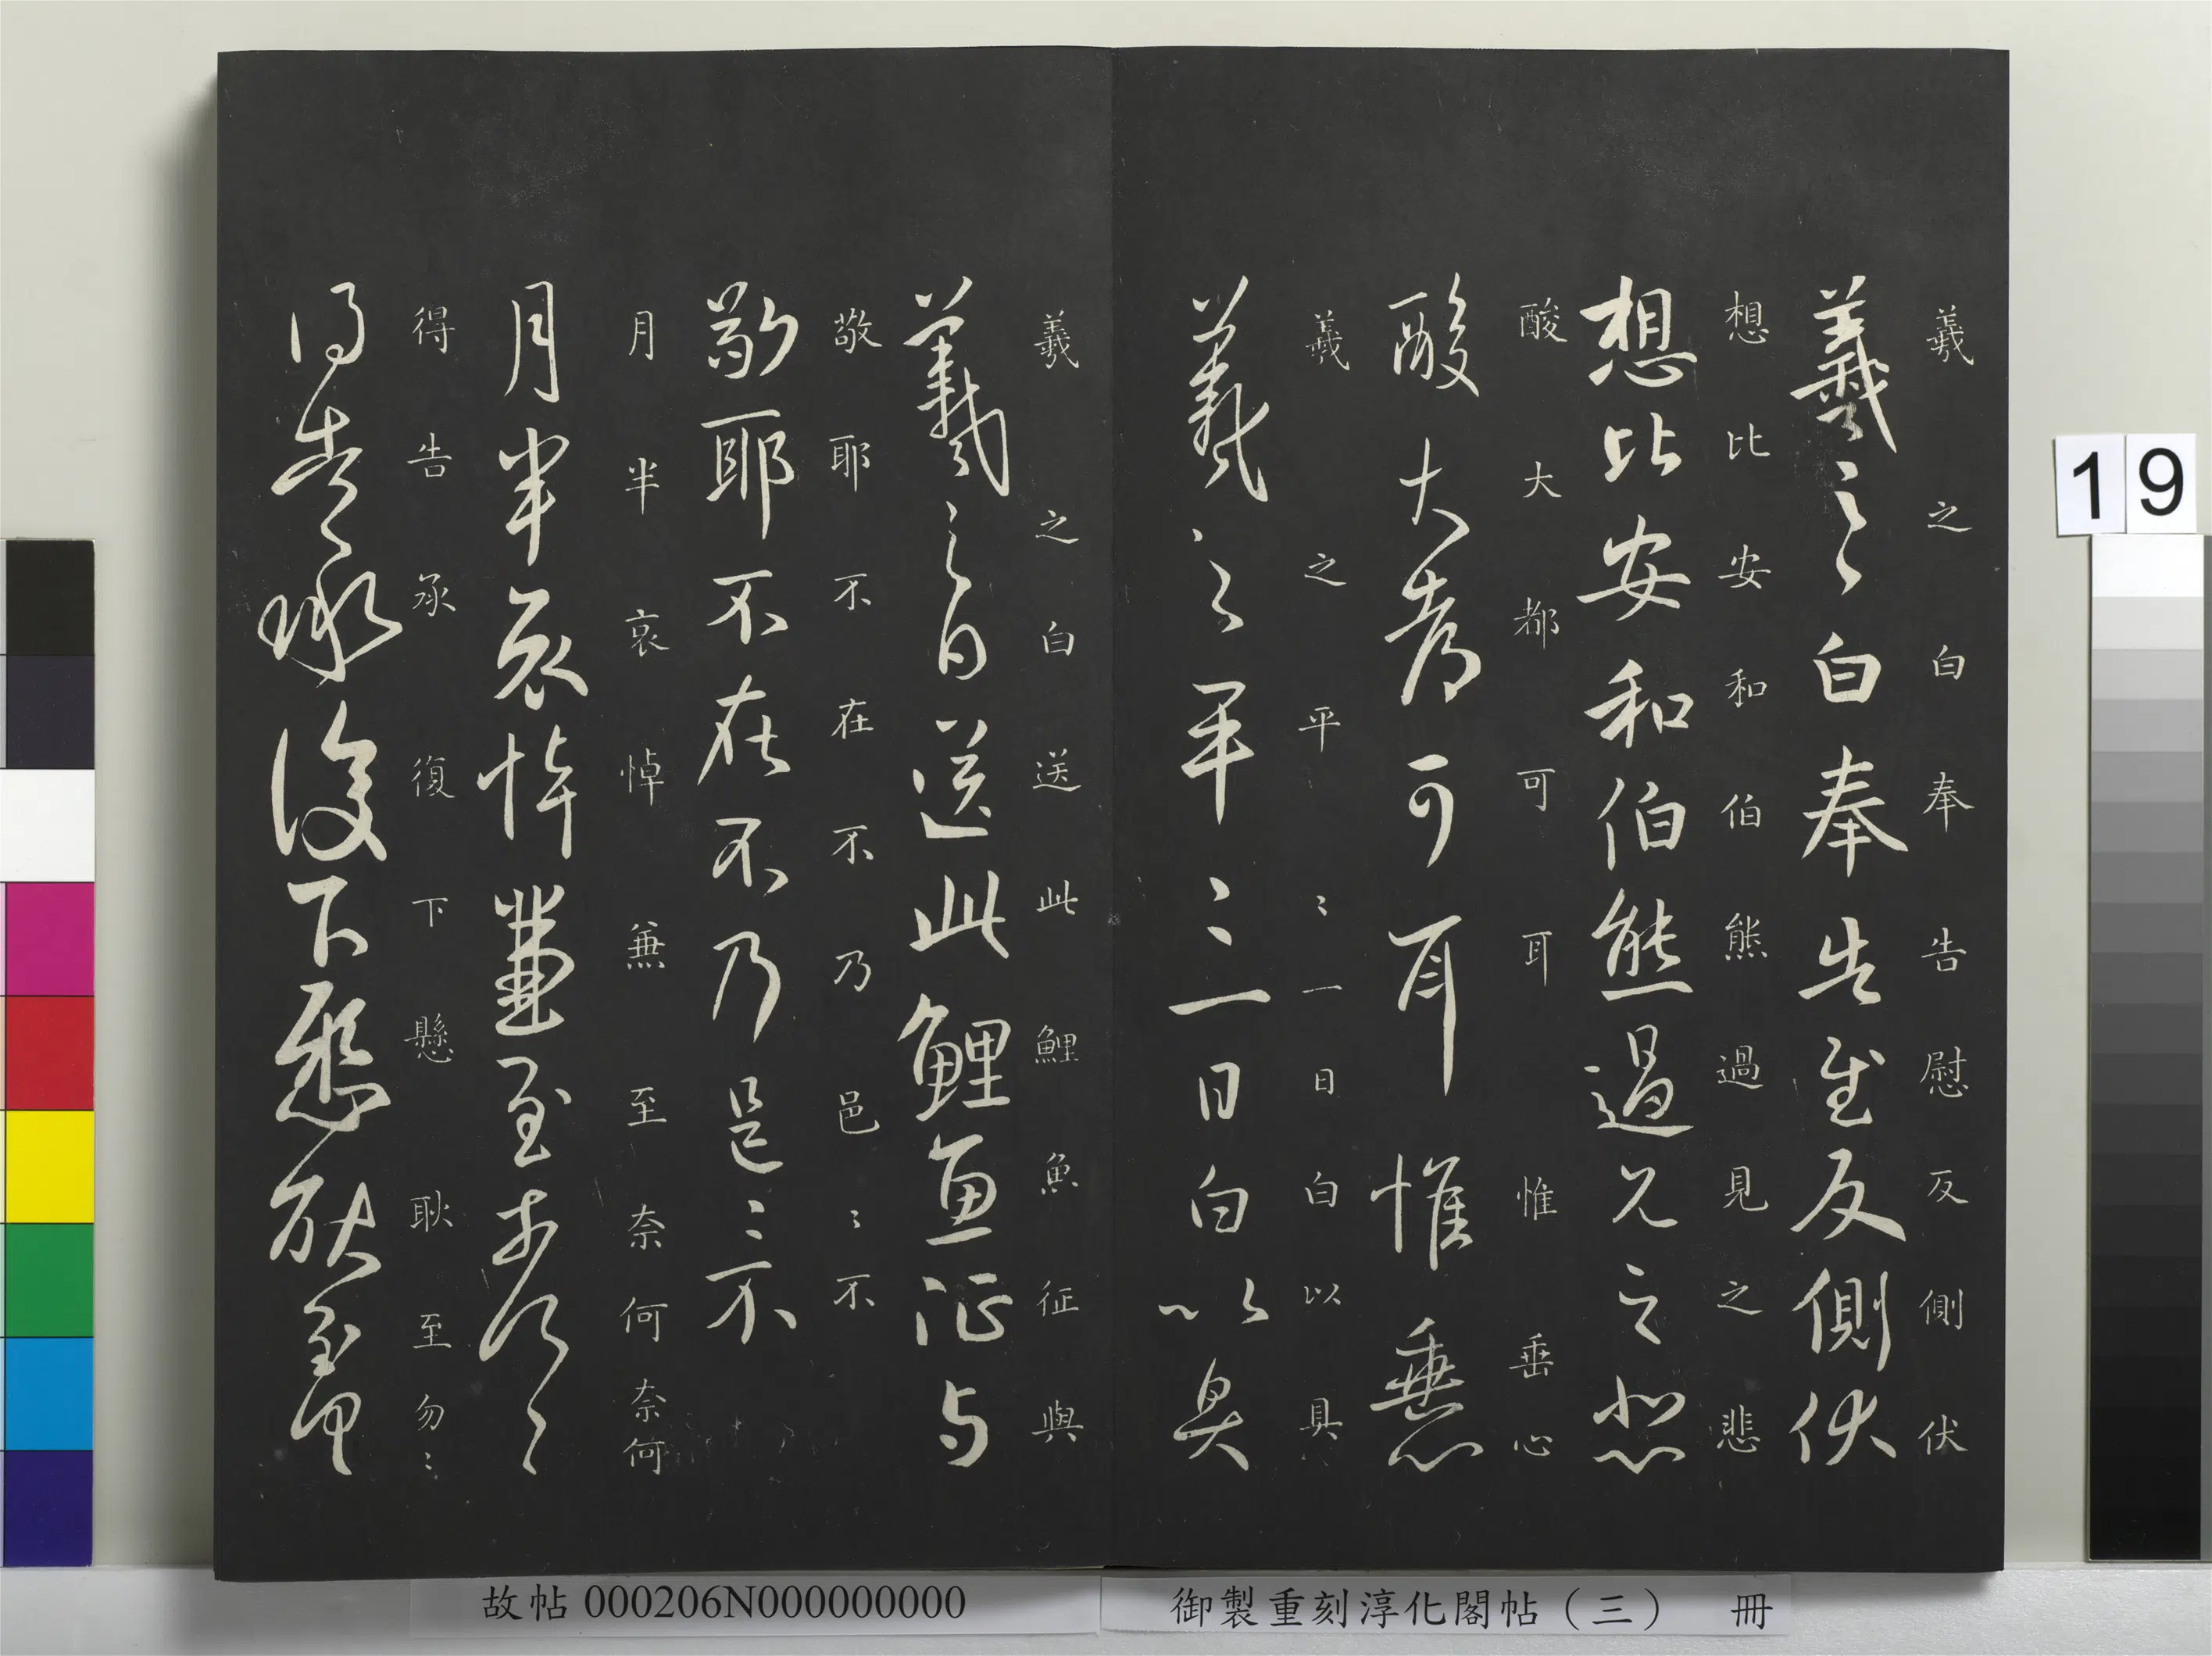 羲之白奉告慰反側伏
羲之白奉告慰反側伏
想比安和伯熊過見之悲
想比安和伯熊過見之悲
酸大都可耳惟垂心
酸大都可耳惟垂心
羲之平〻一日白以具
羲之平〻一日白以具
羲之白送此鯉魚征與
羲之白送此鯉魚征與
敬耶不在不乃邑〻不
敬耶不在不乃邑〻不
月半哀悼兼至奈何奈何
月半哀悼兼至奈何〻〻
得告承復下懸耿至勿〻
得告承復下懸耿至勿〻
19
故帖 000206N000000000
御製重刻淳化閣帖(三) 冊